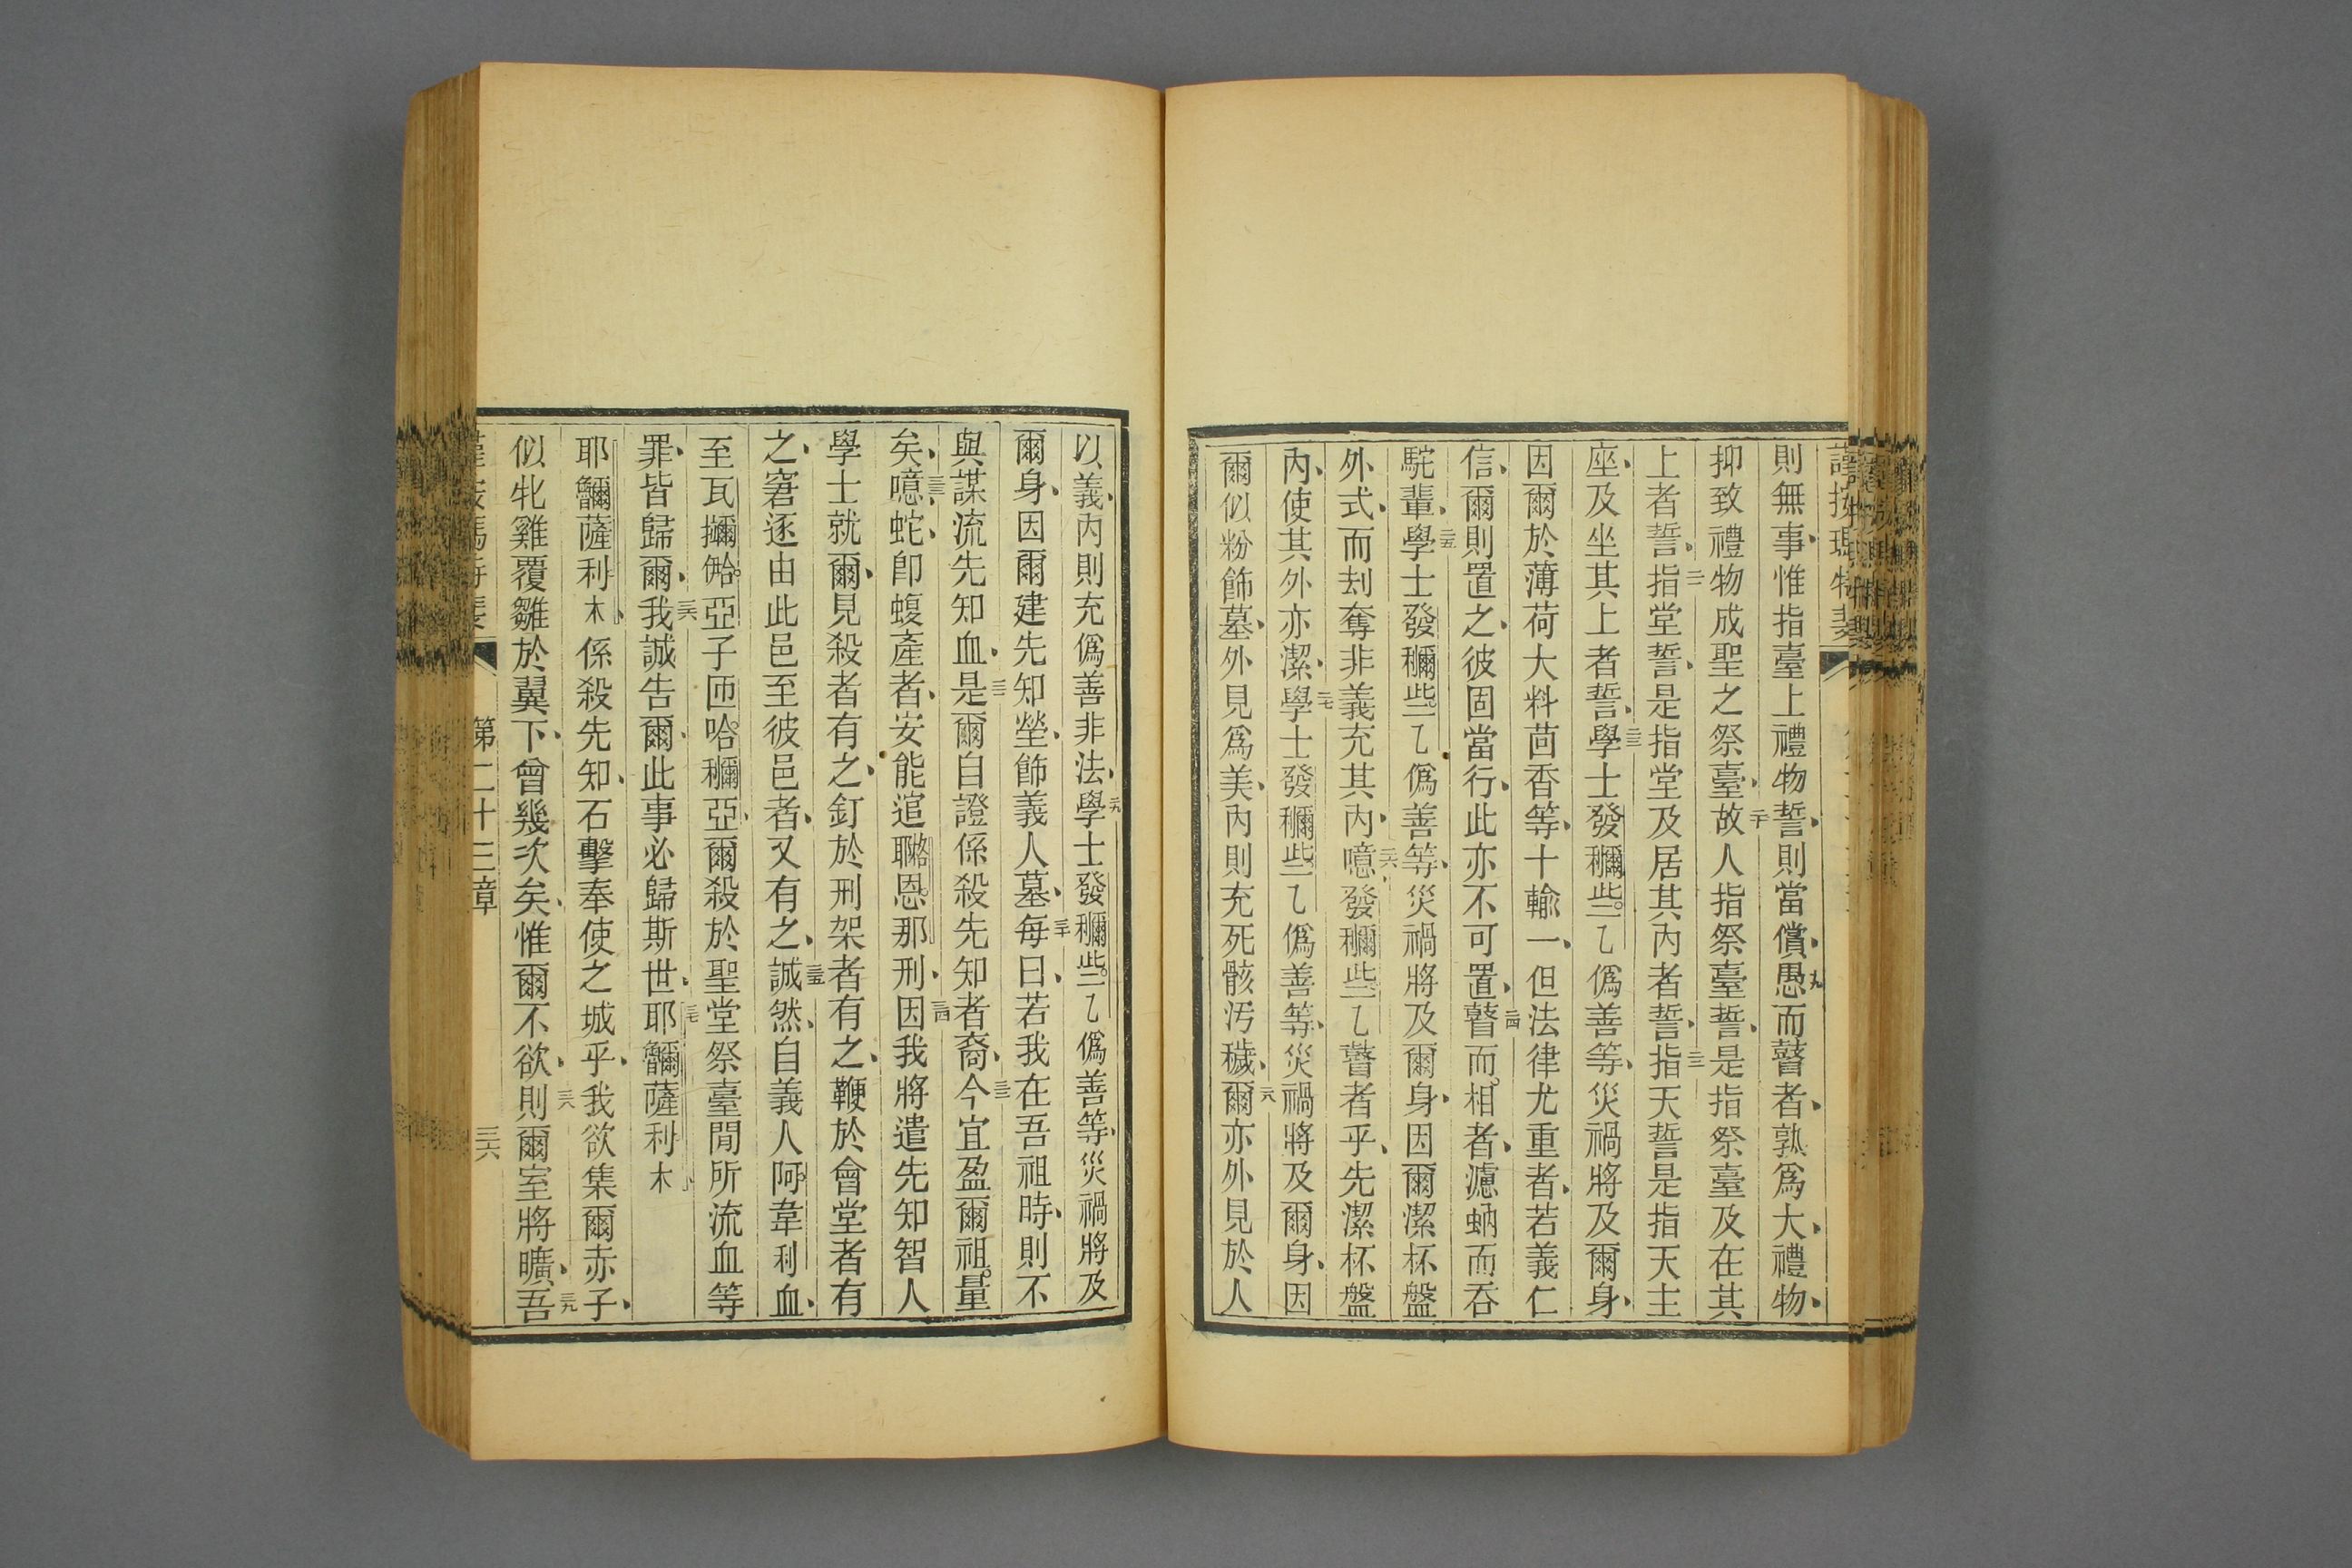 則無事、惟指臺上禮物誓、則當償、十九愚而瞽者、孰爲大、禮物、
抑致禮物成聖之祭臺、二十故人指祭臺誓、是指祭臺及在其
上者誓、二一指堂誓、是指堂及居其內者誓、二二指天誓是指天主
座、及坐其上者誓、二三學士發穪些乙僞善等、災禍將及爾身、
因爾於薄荷大料茴香等、十輸一、但法律尤重者、若義仁
信、爾則置之、彼固當行、此亦不可置、二四瞽而相者、濾蚋而吞
駝輩、二五學士發穪些乙僞善等、災禍將及爾身、因爾潔杯盤
外式、而刦奪非義充其內、二六噫、發穪些乙瞽者乎、先潔杯盤
內、使其外亦潔、二七學士發穪些乙僞善等、災禍將及爾身、因
爾似粉飾墓、外見爲美、內則充死骸汚穢、二八爾亦外見於人
以義、內則充僞善非法、二九學士發穪些乙僞善等、災禍將及
爾身、因爾建先知塋、飾義人墓、三十每曰、若我在吾祖時、則不
與謀流先知血、三一是爾自證係殺先知者裔、三二今宜盈爾祖量
矣、三三噫、蛇、卽蝮產者、安能逭恩那刑、三四因我將遣先知智人
學士就爾、見殺者有之、釘於刑架者有之、鞭於會堂者有
之、窘逐由此邑至彼邑者、又有之、三五誠然、自義人阿韋利血、
至瓦亞子匝哈穪亞、爾殺於聖堂祭臺閒所流血等
罪、皆歸爾、三六我誠告爾、此事必歸斯世、三七耶薩利木、
耶薩利木、係殺先知、石擊奉使之城乎、我欲集爾赤子、
似牝雞覆雛於翼下、曾幾次矣、惟爾不欲、三八則爾室將曠、三九吾
第二十三章
三六